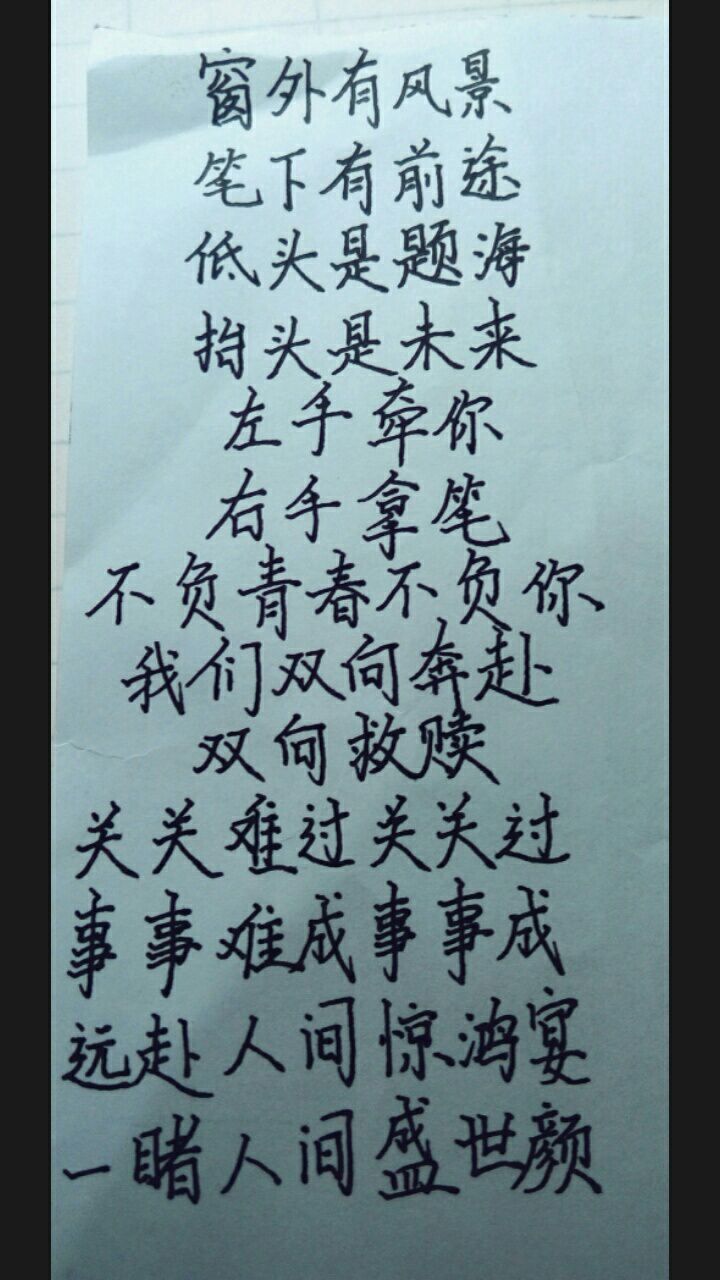 窗外有风景
笔下有前途
低头是题海
抬头是未来
左手牵你
右手拿笔
不负青春不负你
我们双向奔赴
双向救赎
关关难过关关过
事事难成事事成
远赴人间惊鸿宴
一睹人间盛世颜